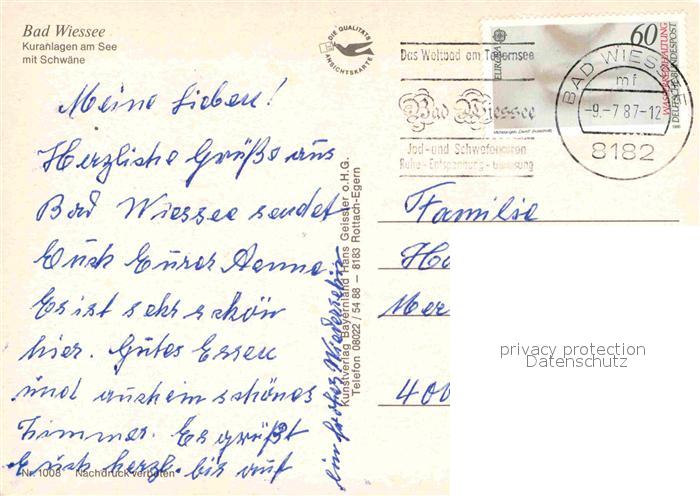 Bad Wiessee
Kuranlagen am See
mit Schwäne
DIE QUALITÄTS
ANSICHTSKARTE
Das Weltbad am Tegernsee
Bad Wiessee
Jod- und Schwefelquellen
Ruhe - Entspannung - Genesung
EUROPA
60
DEUTSCHE BUNDESPOST
BAD WIESSEE
mf
-9.-7.87-12
8182
Meine Lieben!
Herzliche Grüße aus
Bad Wiessee sendet
Euch Eurer
Es ist sehr schön
hier. Gutes Essen
und auch ein schönes
Zimmer. Es grüßt
Euch herzl. bis auf
ein frohes Wiedersehen
Kunstverlag Bayernland Hans Geissler o.H.G.
Telefon 08022 / 54 88 – 8183 Rottach-Egern
Familie
Ho
Mer
400
privacy protection
Datenschutz
Nr. 1008 Nachdruck verboten